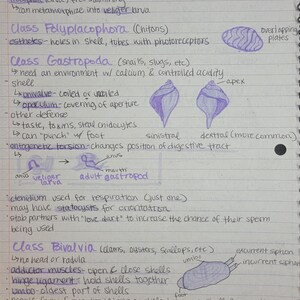 can metamorphize into veliger larva
Class Polyplacophora (Chitons)
esthetes - holes in shell, tubes with photoreceptors
overlapping
plates
Class Gastropoda (snails, slugs, etc)
↳ need an environment w/ calcium & controlled acidity
shell
apex
↳ univalve - coiled or
↳ operculum - covering of aperture
other defense
↳ taste, toxins, steal cnidocytes
↳ can "punch" w/ foot
sinistral
dextral (more common)
ontogenetic torsion - changes position of digestive tract
anus
mouth
veliger
larva
adult gastropod
ctenidium used for respiration (just one)
may have statocysts for orientation
stab partners with "love dart" to increase the chance of their sperm
being used
Class Bivalvia (clams, oysters, scallops, etc.)
↳ no head or radula
excurrent siphon
incurrent siphon
umbo
adductor muscles - open & close shells
hinge ligament - hold shells together
umbo - oldest part of shells
foot